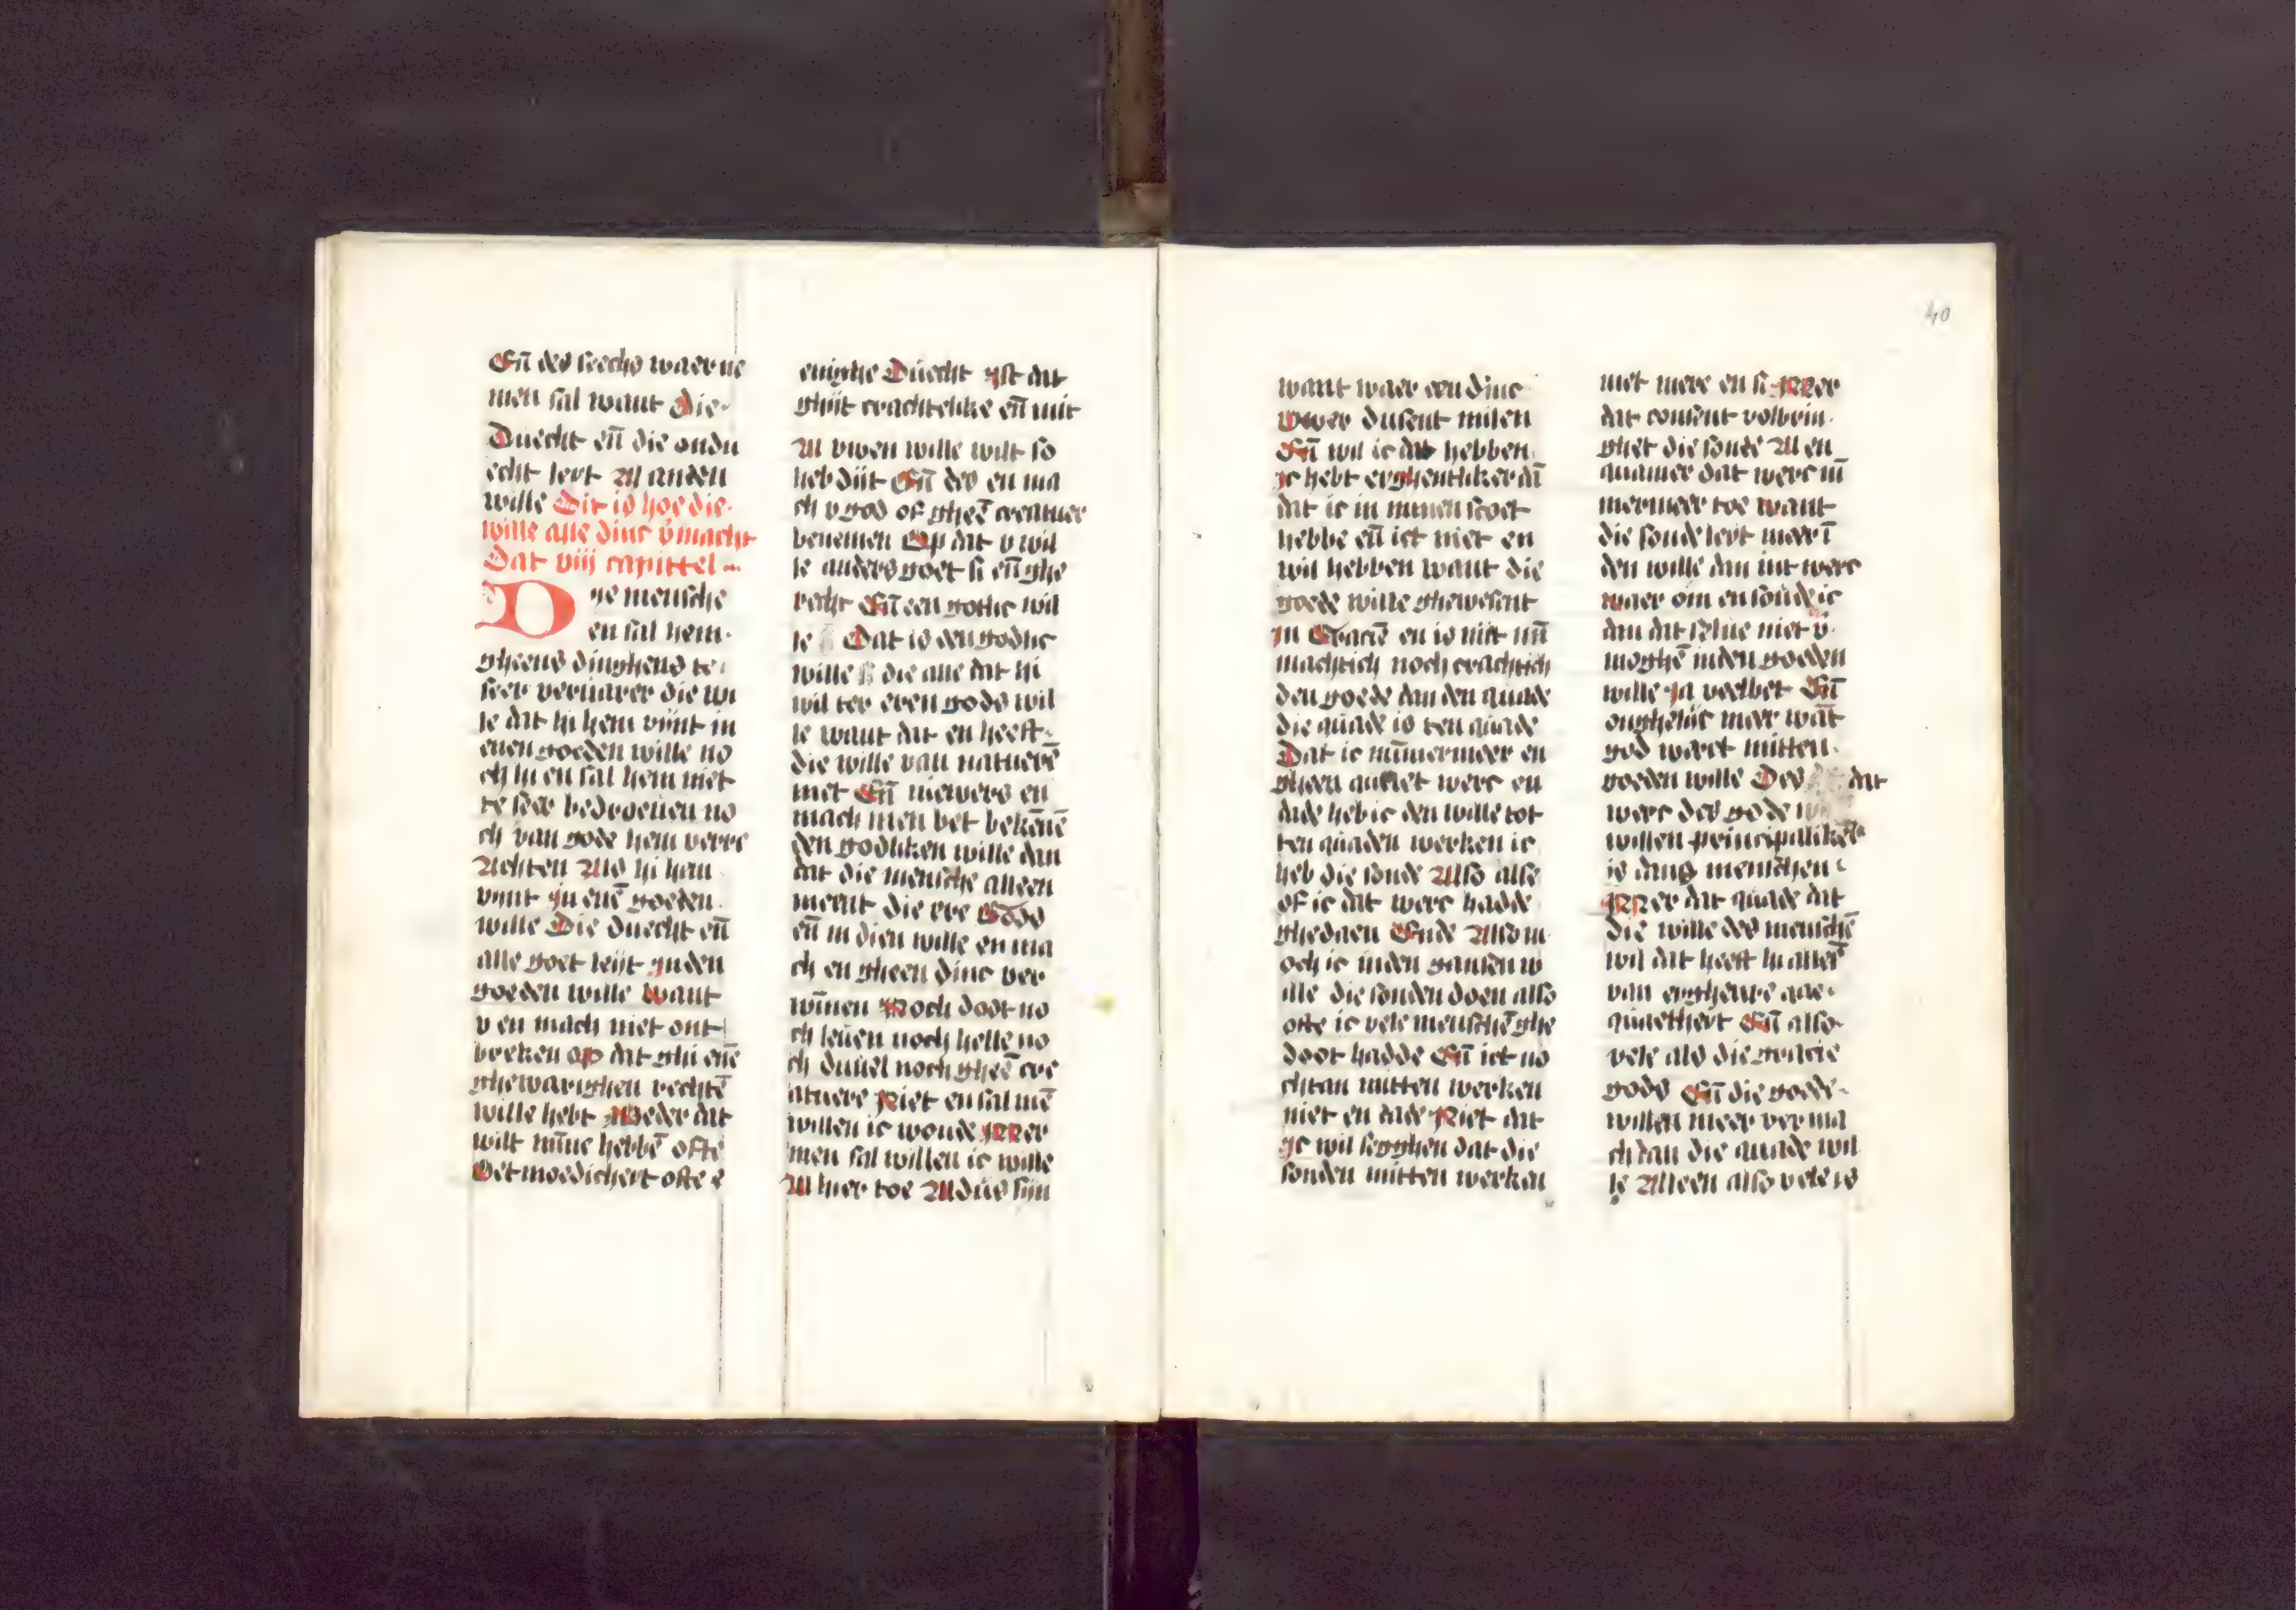 Eñ des seechs waer ne
men sal want die
Duecht eñ die ondu
echt leyt Al anden
wille Dit is hoe die
wille alle dinc v̄macht
Dat viij capittel
Dye mensche
en sal hem
gheens dinghens te
seer vervaren die wi
le dat hi hem vijnt in
enen goeden wille no
ch hi en sal hem niet
te seer bedroeuen no
ch van gode hem verre
Achten Als hi hem
vijnt jn enē goeden
wille Die duecht eñ
alle goet leijt jnden
goeden wille want
v en mach niet ont
breken op dat ghi enē
ghewarighen rechtē
wille hebt Weder dat
wilt mīne hebbē ofte
Oetmoedicheit ofte e
enighe Duecht jst dat
ghijt crachtelike eñ mit
Al vwen wille wilt so
heb dijt Eñ des en ma
ch v god of gheē creatuer
benemen Op dat v wil
le anders goet si eñ ghe
recht Eñ een gotlic wil
le Dat is den godlic
wille die alle dat hi
wil ter eren gods wil
le want dat en heeft
die wille van naturē
niet Eñ niewers en
mach men bet bekēnē
den godliken wille dan
dat die mensche alleen
meent die ere Gods
eñ in dien wille en ma
ch en gheen dinc ver
wīnen Noch doot no
ch leuen noch helle no
ch duuel noch gheē cre
atuere Niet en sal mē
willen ic woude Mer
men sal willen ic wille
Al hier toe Aldus sijn
40
want waer een dinc
over dusent milen
Eñ wil ic dat hebben
jc hebt eyghentliker dā
dat ic in minen scoet
hebbe eñ ict niet en
wil hebben want die
goede wille ghewesent
jn Gracīe en is niet mī
machtich noch crachtich
den goede dan den quade
die quade is ten quade
Dat ic nūmermeer en
gheen quaet werc en
dade heb ic den wille tot
ten quaden werken ic
heb die sonde Also alse
of ic dat werc hadde
ghedaen Ende Also m
och ic inden gansen w
ille die sonden doen also
ofte ic vele menschē ghe
doot hadde Eñ ict no
chtan mitten werken
niet en dade Niet dat
jc wil segghen dat die
sonden mitten werken
niet mere en si Mer
dat consent volbrin
ghet die sonde Al en
quamer dat werc nī
mermeer toe want
die sonde leyt meer ī
den wille dan int werc
waer om en soude ic
dan dat selue niet v̄
moghē inden goeden
wille ja veelbet Eñ
onghelijc meer wāt
god werct mitten
goeden wille Des dat
werc des gode
willen principalikē
is dans menschen
Mer dat quade dat
die wille des menschē
wil dat heeft hi alleē
van eygheure
quaetheit Eñ also
vele als die gracie
gods Eñ die goede
willen meer ver ma
ch dan die quade wil
le Alleen also vele is